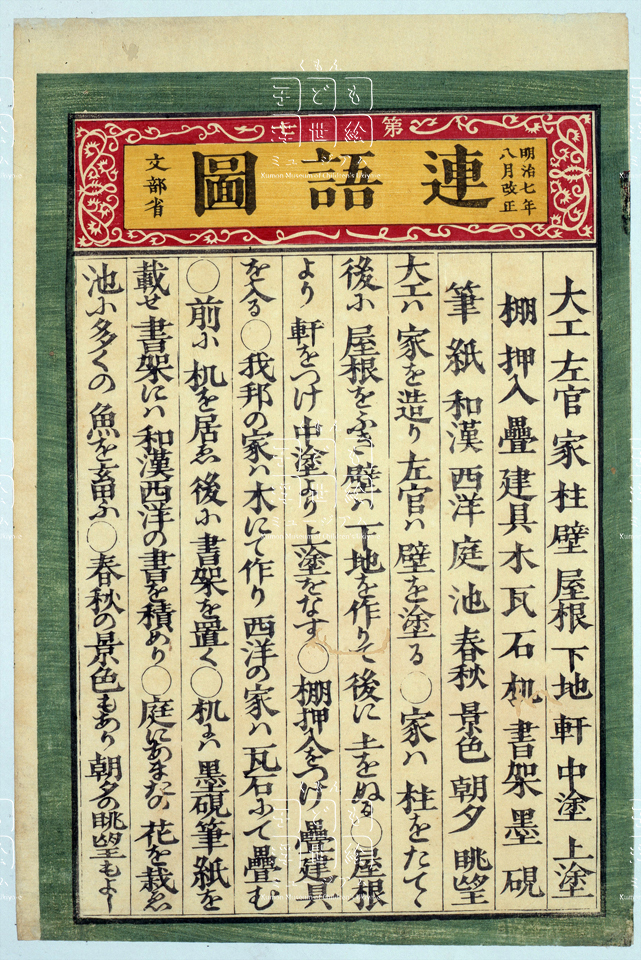 第
明治七年
八月改正
連語圖
文部省
大工 左官 家 柱 壁 屋根 下地 軒 中塗 上塗
棚 押入 疊 建具 木 瓦 石 机 書架 墨 硯
筆 紙 和漢 西洋 庭 池 春秋 景色 朝夕 眺望
大工ハ 家を造り 左官ハ 壁を塗る ○ 家ハ 柱をたてゝ
後ふ 屋根をふき 壁ハ 下地を作りて 後に 土をぬる ○ 屋根
より 軒をつけ 中塗より 上塗をなす ○ 棚押入をつけ 疊建具
を入る ○ 我邦の家ハ 木にて作り 西洋の家ハ 瓦石にて疊む
○ 前ふ 机を居ゑ 後ふ 書架を置く ○ 机にハ 墨硯筆紙を
載せ 書架にハ 和漢西洋の書を積めり ○ 庭にあまたの 花を栽ゑ
池ふ多くの 魚を畜ふ ○ 春秋の景色もあり 朝夕の眺望もよし
くもん
子ども
浮世絵
ミュージアム
Kumon Museum of Children's Ukiyoe